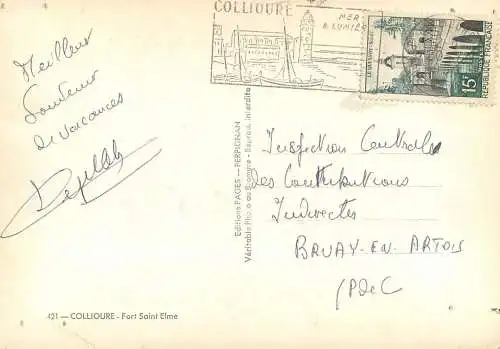 COLLIOURE
MER
& LUMIÈRE
15F
REPUBLIQUE FRANÇAISE
Meilleur
Souvenir
de vacances
Editions PAGES — PERPIGNAN
Véritable Photo au Bromure - Reprod. Interdite
Inspection Centrale
des Contributions
Indirectes
BRUAY-EN-ARTOIS
(P de C
421 — COLLIOURE - Fort Saint Elme